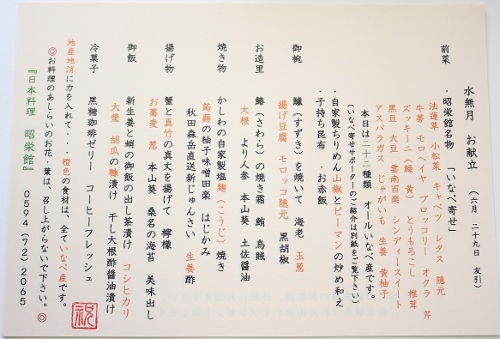 水無月　お献立　（六月　二十九日　友引）
前菜　・昭栄館名物　「いなべ寄せ」
法蓮草　小松菜　キャベツ　レタス　隠元
牛蒡　モロヘイヤ　ブロッコリー　オクラ　芹
ズッキーニ（緑　黄）　とうもろこし　椎茸
黒豆　大豆　雲南百楽　シンディースイート
アスパラガス　じゃがいも　生姜　黄柚子
本日は二十二種類　オールいなべ産です。
（いなべ寄せサポーターのご紹介は別紙をご覧下さい）
・自家製ちりめん山椒とピーマンの炒め和え
・子持ち昆布　・お赤飯
御椀　鱸（すずき）を焼いて　海老　玉葱
揚げ豆腐　モロッコ隠元　黒胡椒
お造里　鰆（さわら）の焼き霜　鮪　烏賊
大根　より人参　本山葵　土佐醤油
焼き物　かしわの自家製塩麹（こうじ）焼き
蒟蒻の柚子味噌田楽　はじかみ
秋田森岳直送新じゅんさい　生姜酢
揚げ物　蟹と真竹の真丈を揚げて　檸檬
お蕎麦　葱　本山葵　桑名の海苔　美味出し
御飯　新生姜と蛸の御飯の出し茶漬け　コシヒカリ
大葉　胡瓜の糠漬け　干し大根酢醤油漬け
冷菓子　黒糖珈琲ゼリー　コーヒーフレッシュ
地産地消に力を入れて・・・橙色の食材は、全ていなべ産です。
◎お料理のあしらいのお花・葉は、召し上がらないで下さい。◎
『日本料理　昭栄館』　0594(72)2065
祝